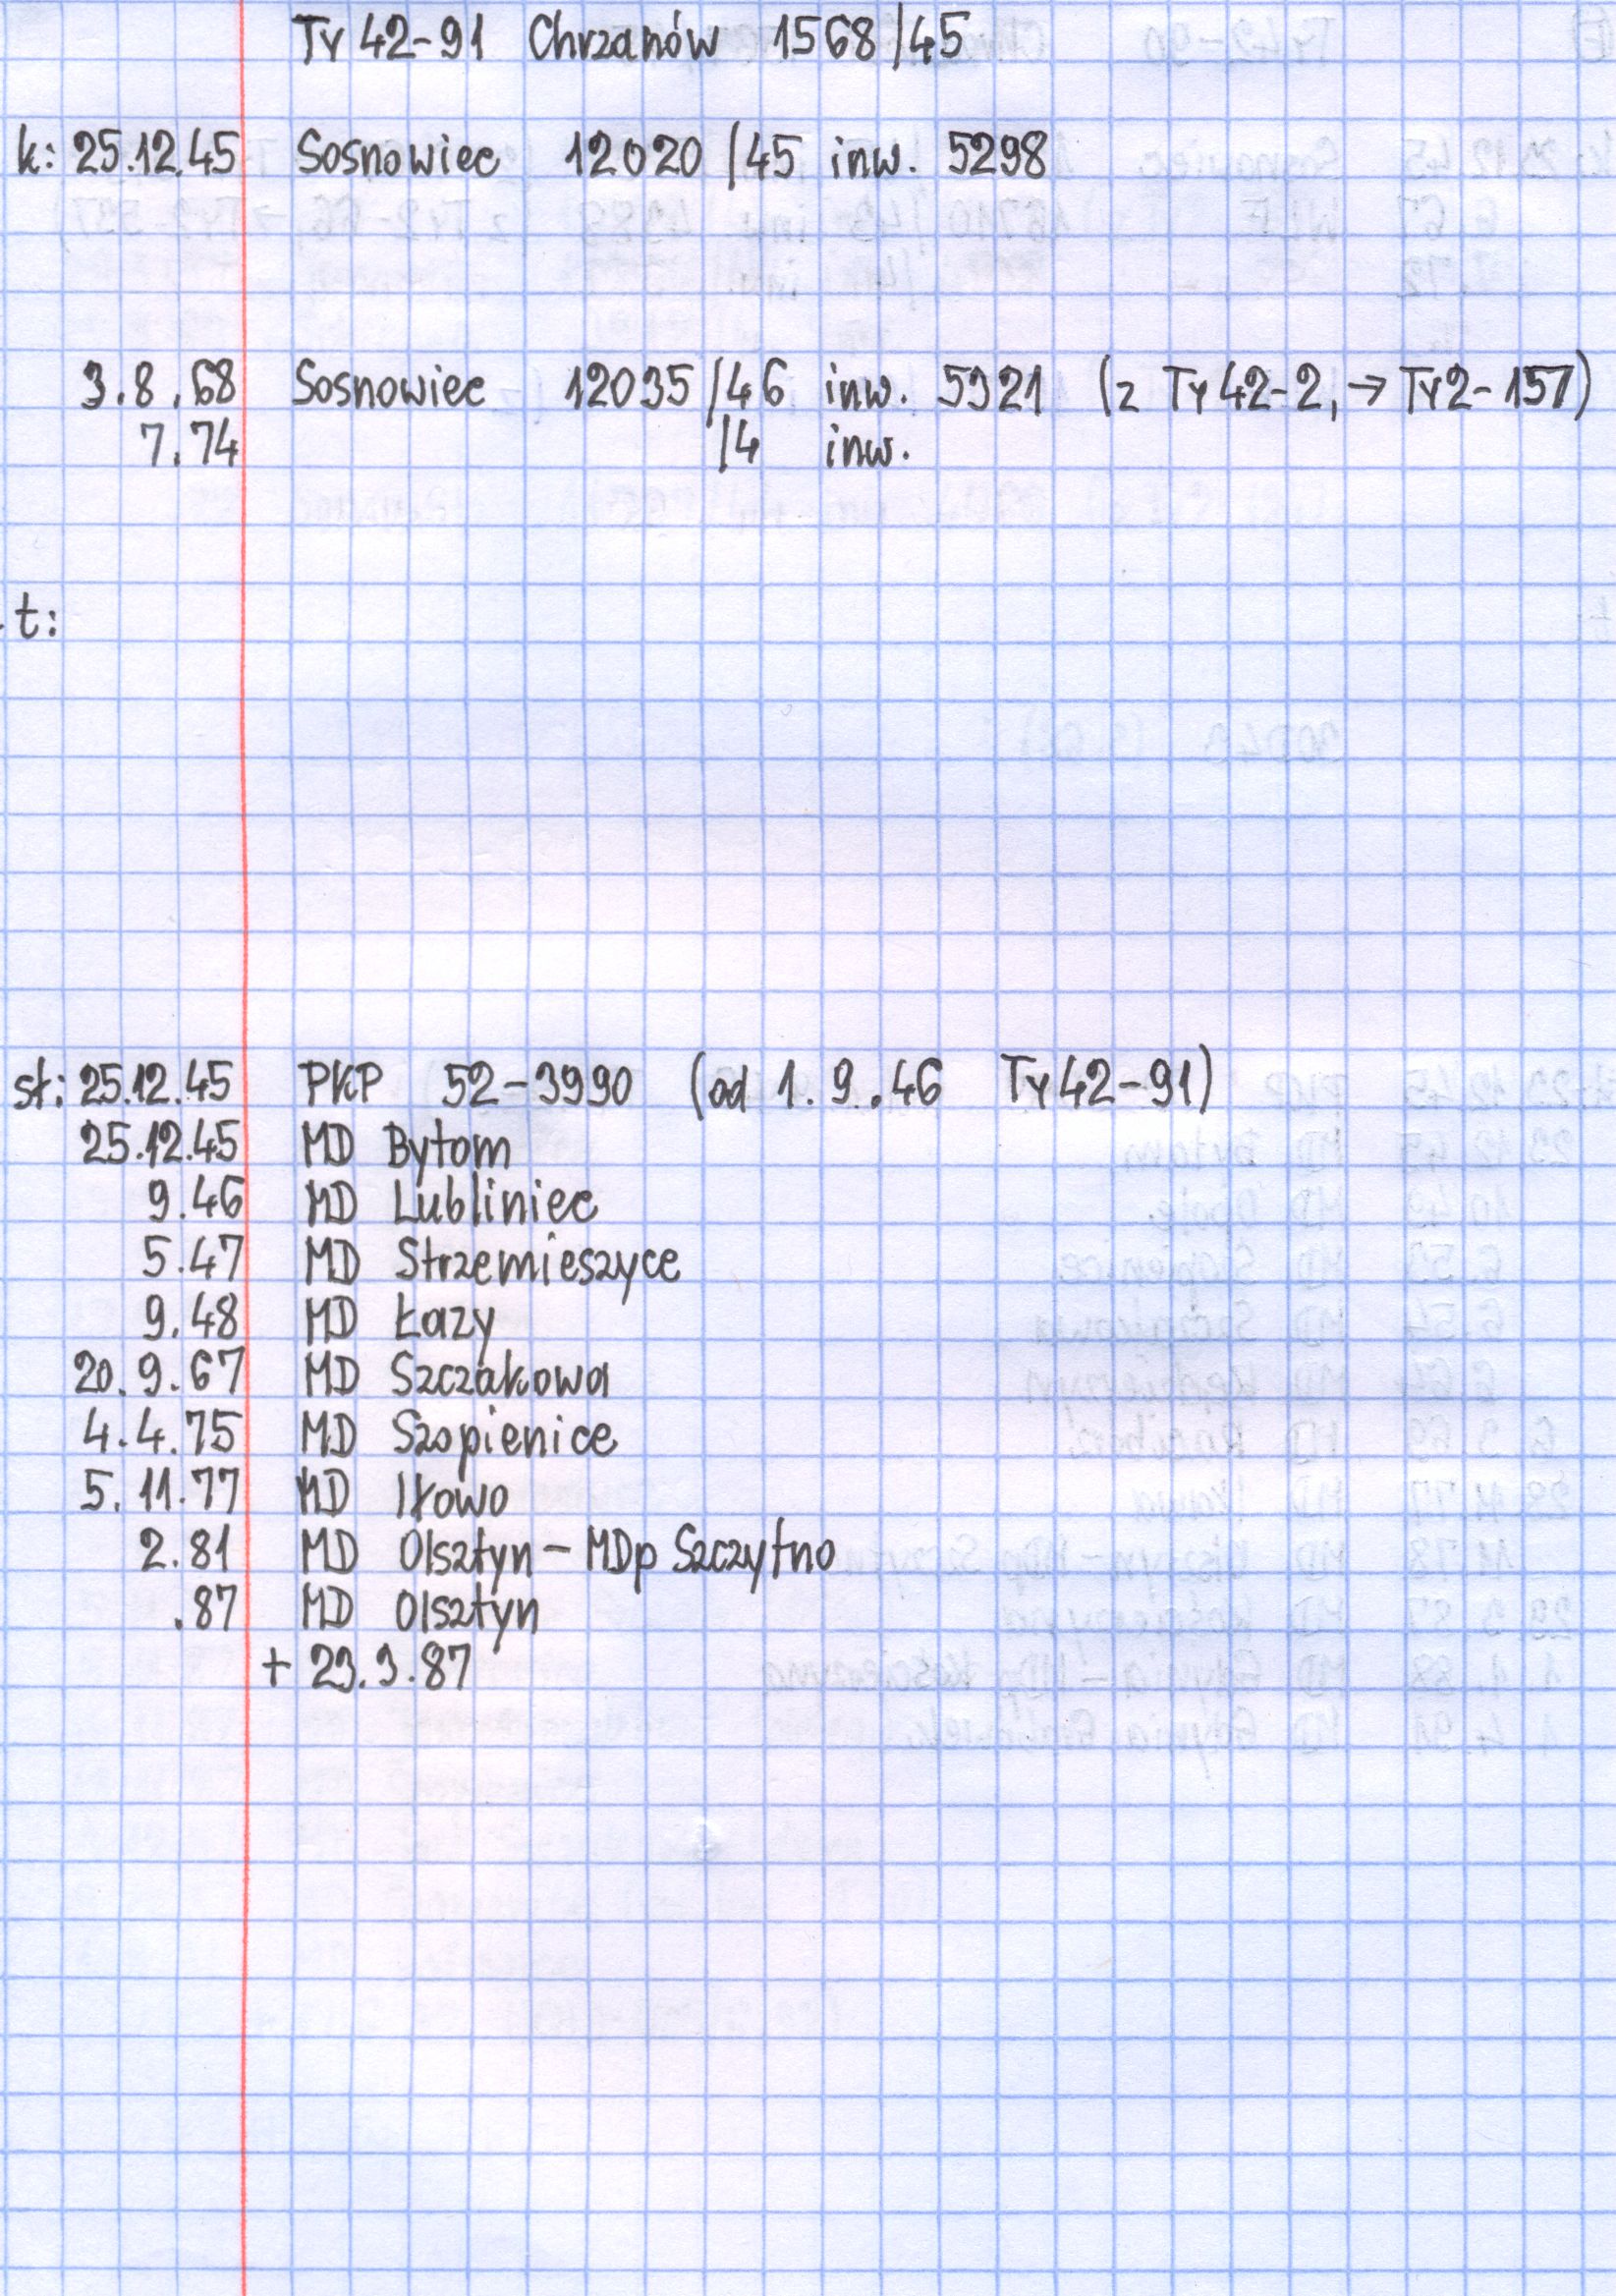 Ty 42-91 Chrzanów 1568/45
k: 25.12.45 Sosnowiec 12020/45 inw. 5298
3.8.68 Sosnowiec 12035/46 inw. 5321 (z Ty 42-2, → Ty2-157)
7.74 /4 inw.
t:
st: 25.12.45 PKP 52-3990 (od 1.9.46 Ty 42-91)
25.12.45 MD Bytom
9.46 MD Lubliniec
5.47 MD Strzemieszyce
9.48 MD Łazy
20.9.67 MD Szczakowa
4.4.75 MD Szopienice
5.11.77 MD Iłowo
2.81 MD Olsztyn - MDp Szczytno
.87 MD Olsztyn
+ 23.3.87